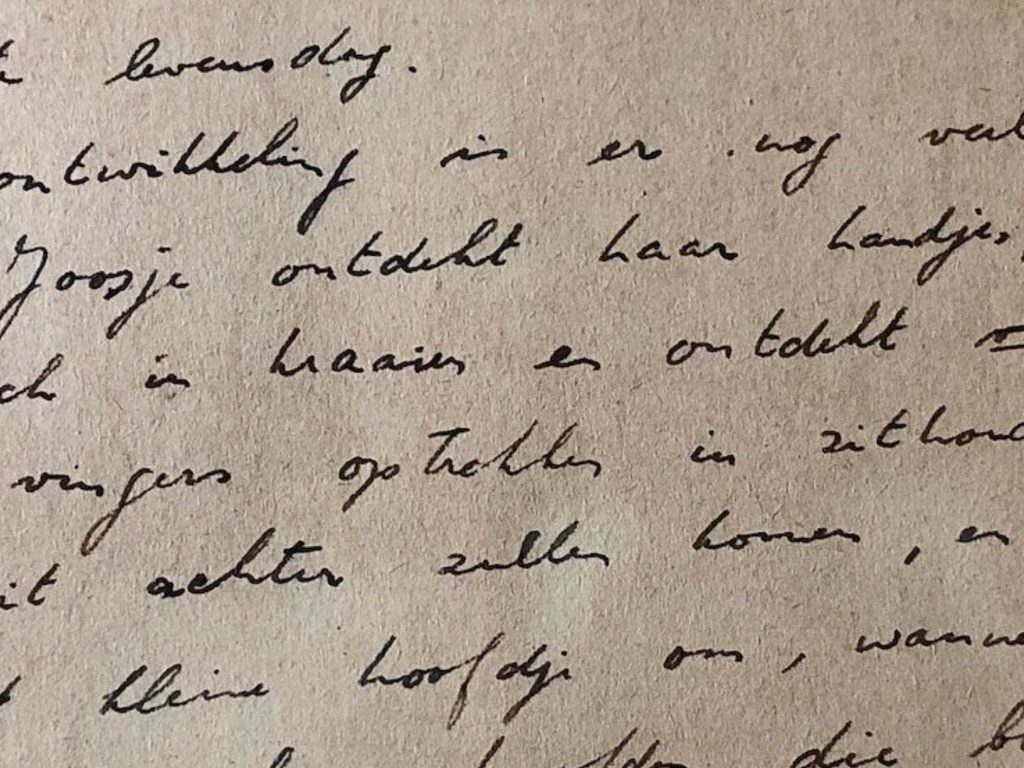 levensdag.
ontwikkeling is er nog veel
Joosje ontdekt haar handjes,
in kraaien en ontdekt
vingers optrekken in zithou
achter zullen komen, en
kleine hoofdje om, wanne
die